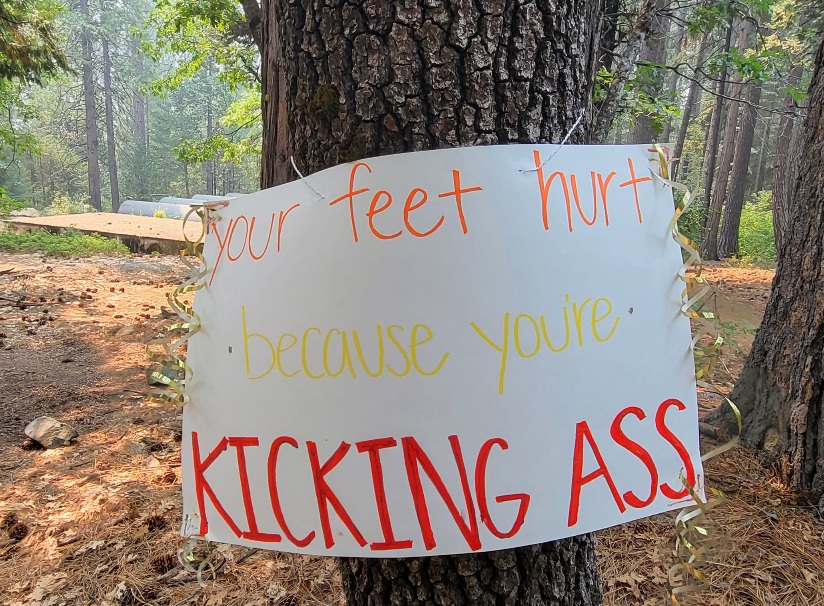 your feet hurt
because you're
KICKING ASS